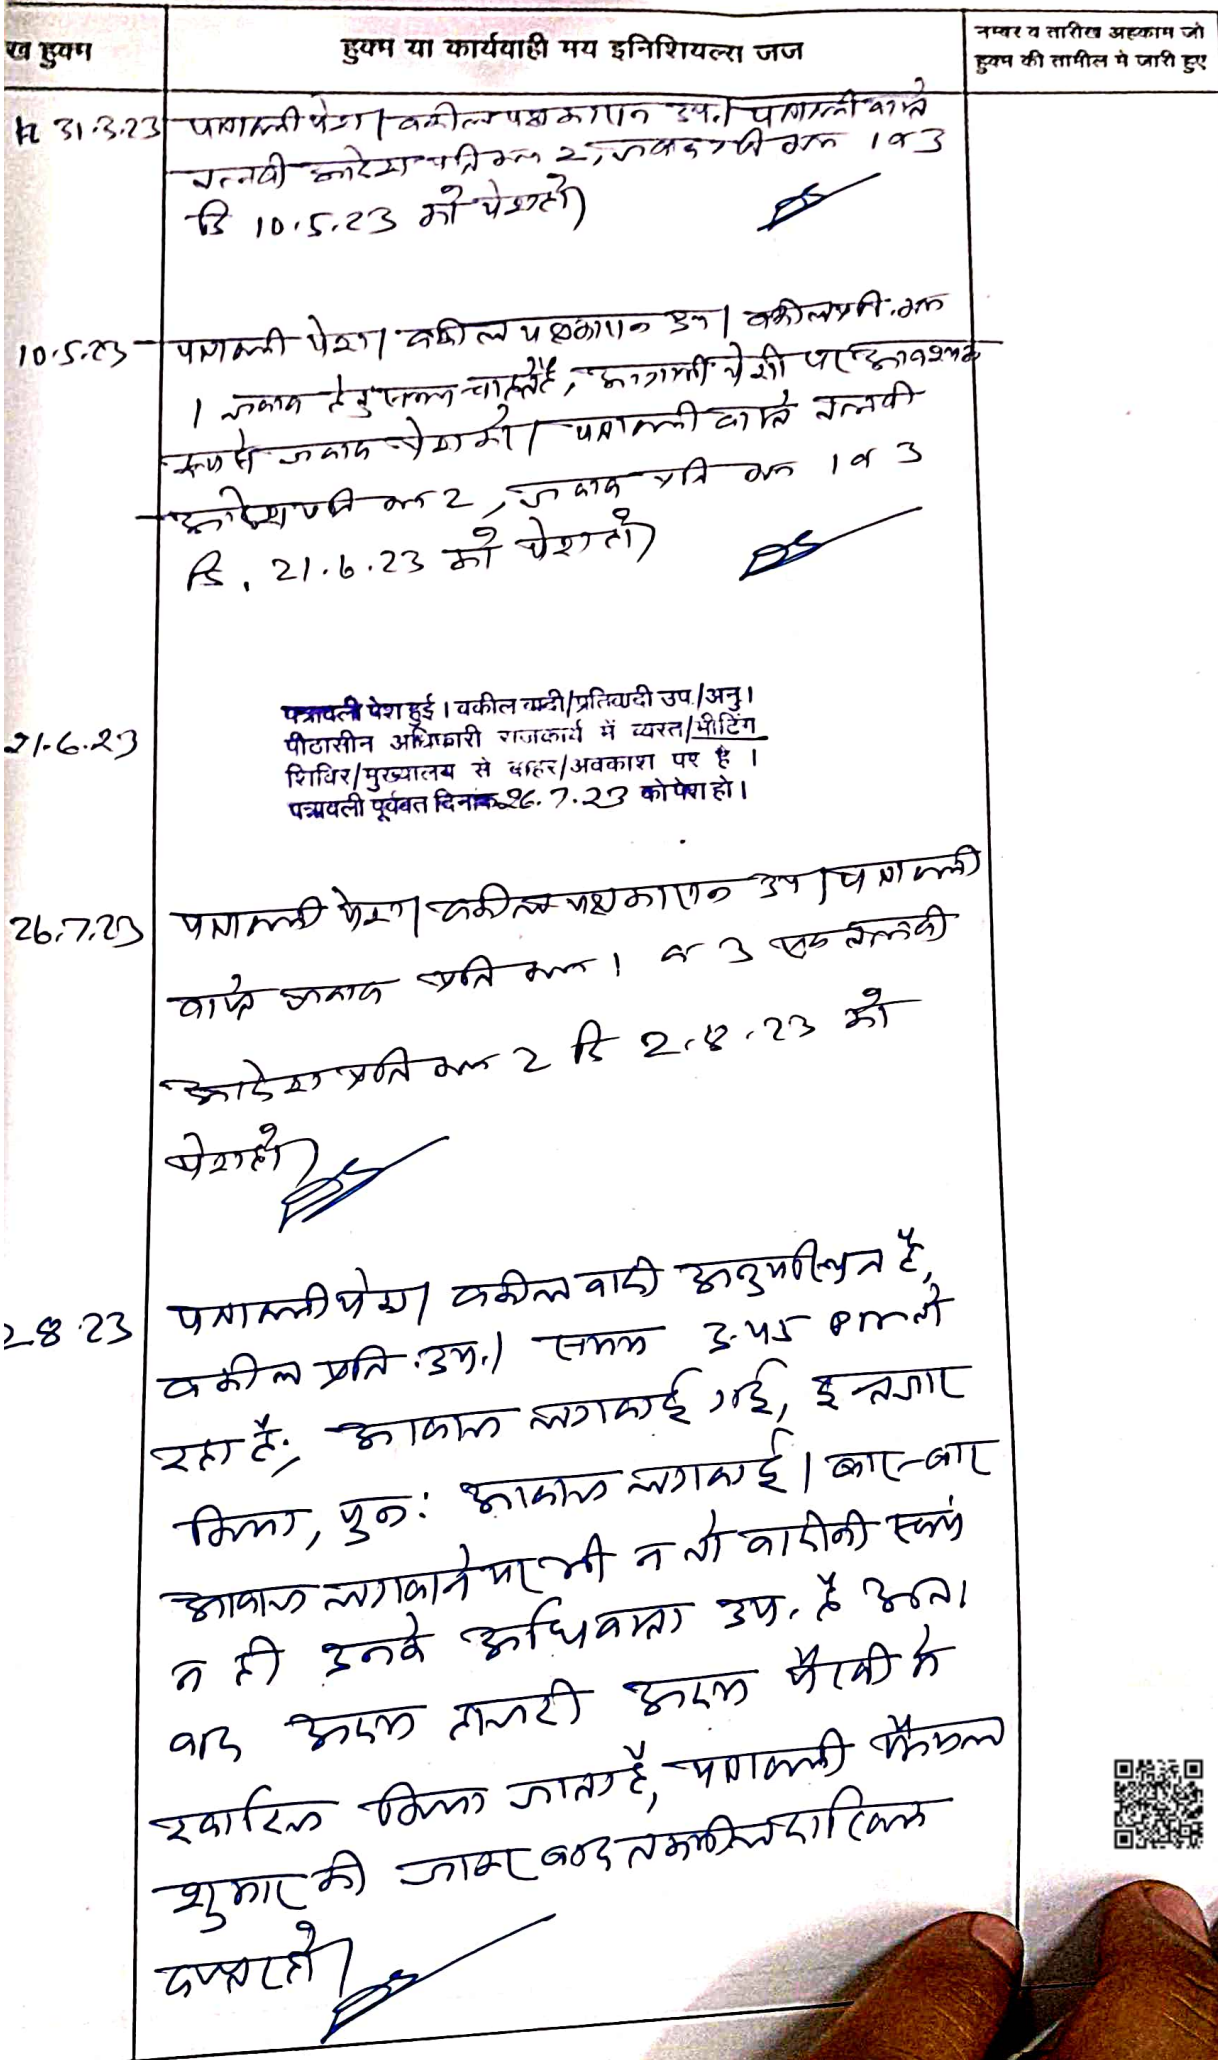 ख हुक्म
हुक्म या कार्यवाही मय इनिशियल्स जज
नम्बर व तारीख अहकाम जो
हुक्म की तामील मे जारी हुए
31.3.23 पत्रावली पेश। वकील पक्षकारान उप.। पत्रावली वास्ते
तलबी आदेश प्रति सं० 2, जवाब प्रति सं० 1 व 3
दि 10.5.23 को पेश हो।
10.5.23 पत्रावली पेश। वकील पक्षकारान उप। वकील प्रति. सं०
1 जवाब हेतु समय चाहते है, आगामी पेशी पर आवश्यक
रूप से जवाब पेश करे। पत्रावली वास्ते तलबी
आदेश प्रति सं० 2, जवाब प्रति सं० 1 व 3
दि. 21.6.23 को पेश हो।
21.6.23
पत्रावली पेश हुई। वकील वादी/प्रतिवादी उप./अनु।
पीठासीन अधिकारी राजकार्य में व्यस्त/मीटिंग
शिविर/मुख्यालय से बाहर/अवकाश पर है ।
पत्रावली पूर्ववत दिनांक 26.7.23 को पेश हो।
26.7.23 पत्रावली पेश। वकील पक्षकारान उप। पत्रावली
वास्ते जवाब प्रति सं० 1 व 3 एवं तलबी
आदेश प्रति सं० 2 दि 2.8.23 को
पेश हो।
2.8.23 पत्रावली पेश। वकील वादी अनुपस्थित है,
वकील प्रति. उप.। समय 3.45 PM हो
रहा है, आवाज लगवाई गई, इन्तजार
किया, पुन: आवाज लगवाई। बार-बार
आवाज लगवाने पर भी न तो वादीनी स्वयं
न ही उनके अधिवक्ता उप. है अत:
वाद अदम हाजरी अदम पैरवी मे
खारिज किया जाता है, पत्रावली फैसल
शुमार की जाकर बाद तकमील दाखिल
दफ्तर हो।